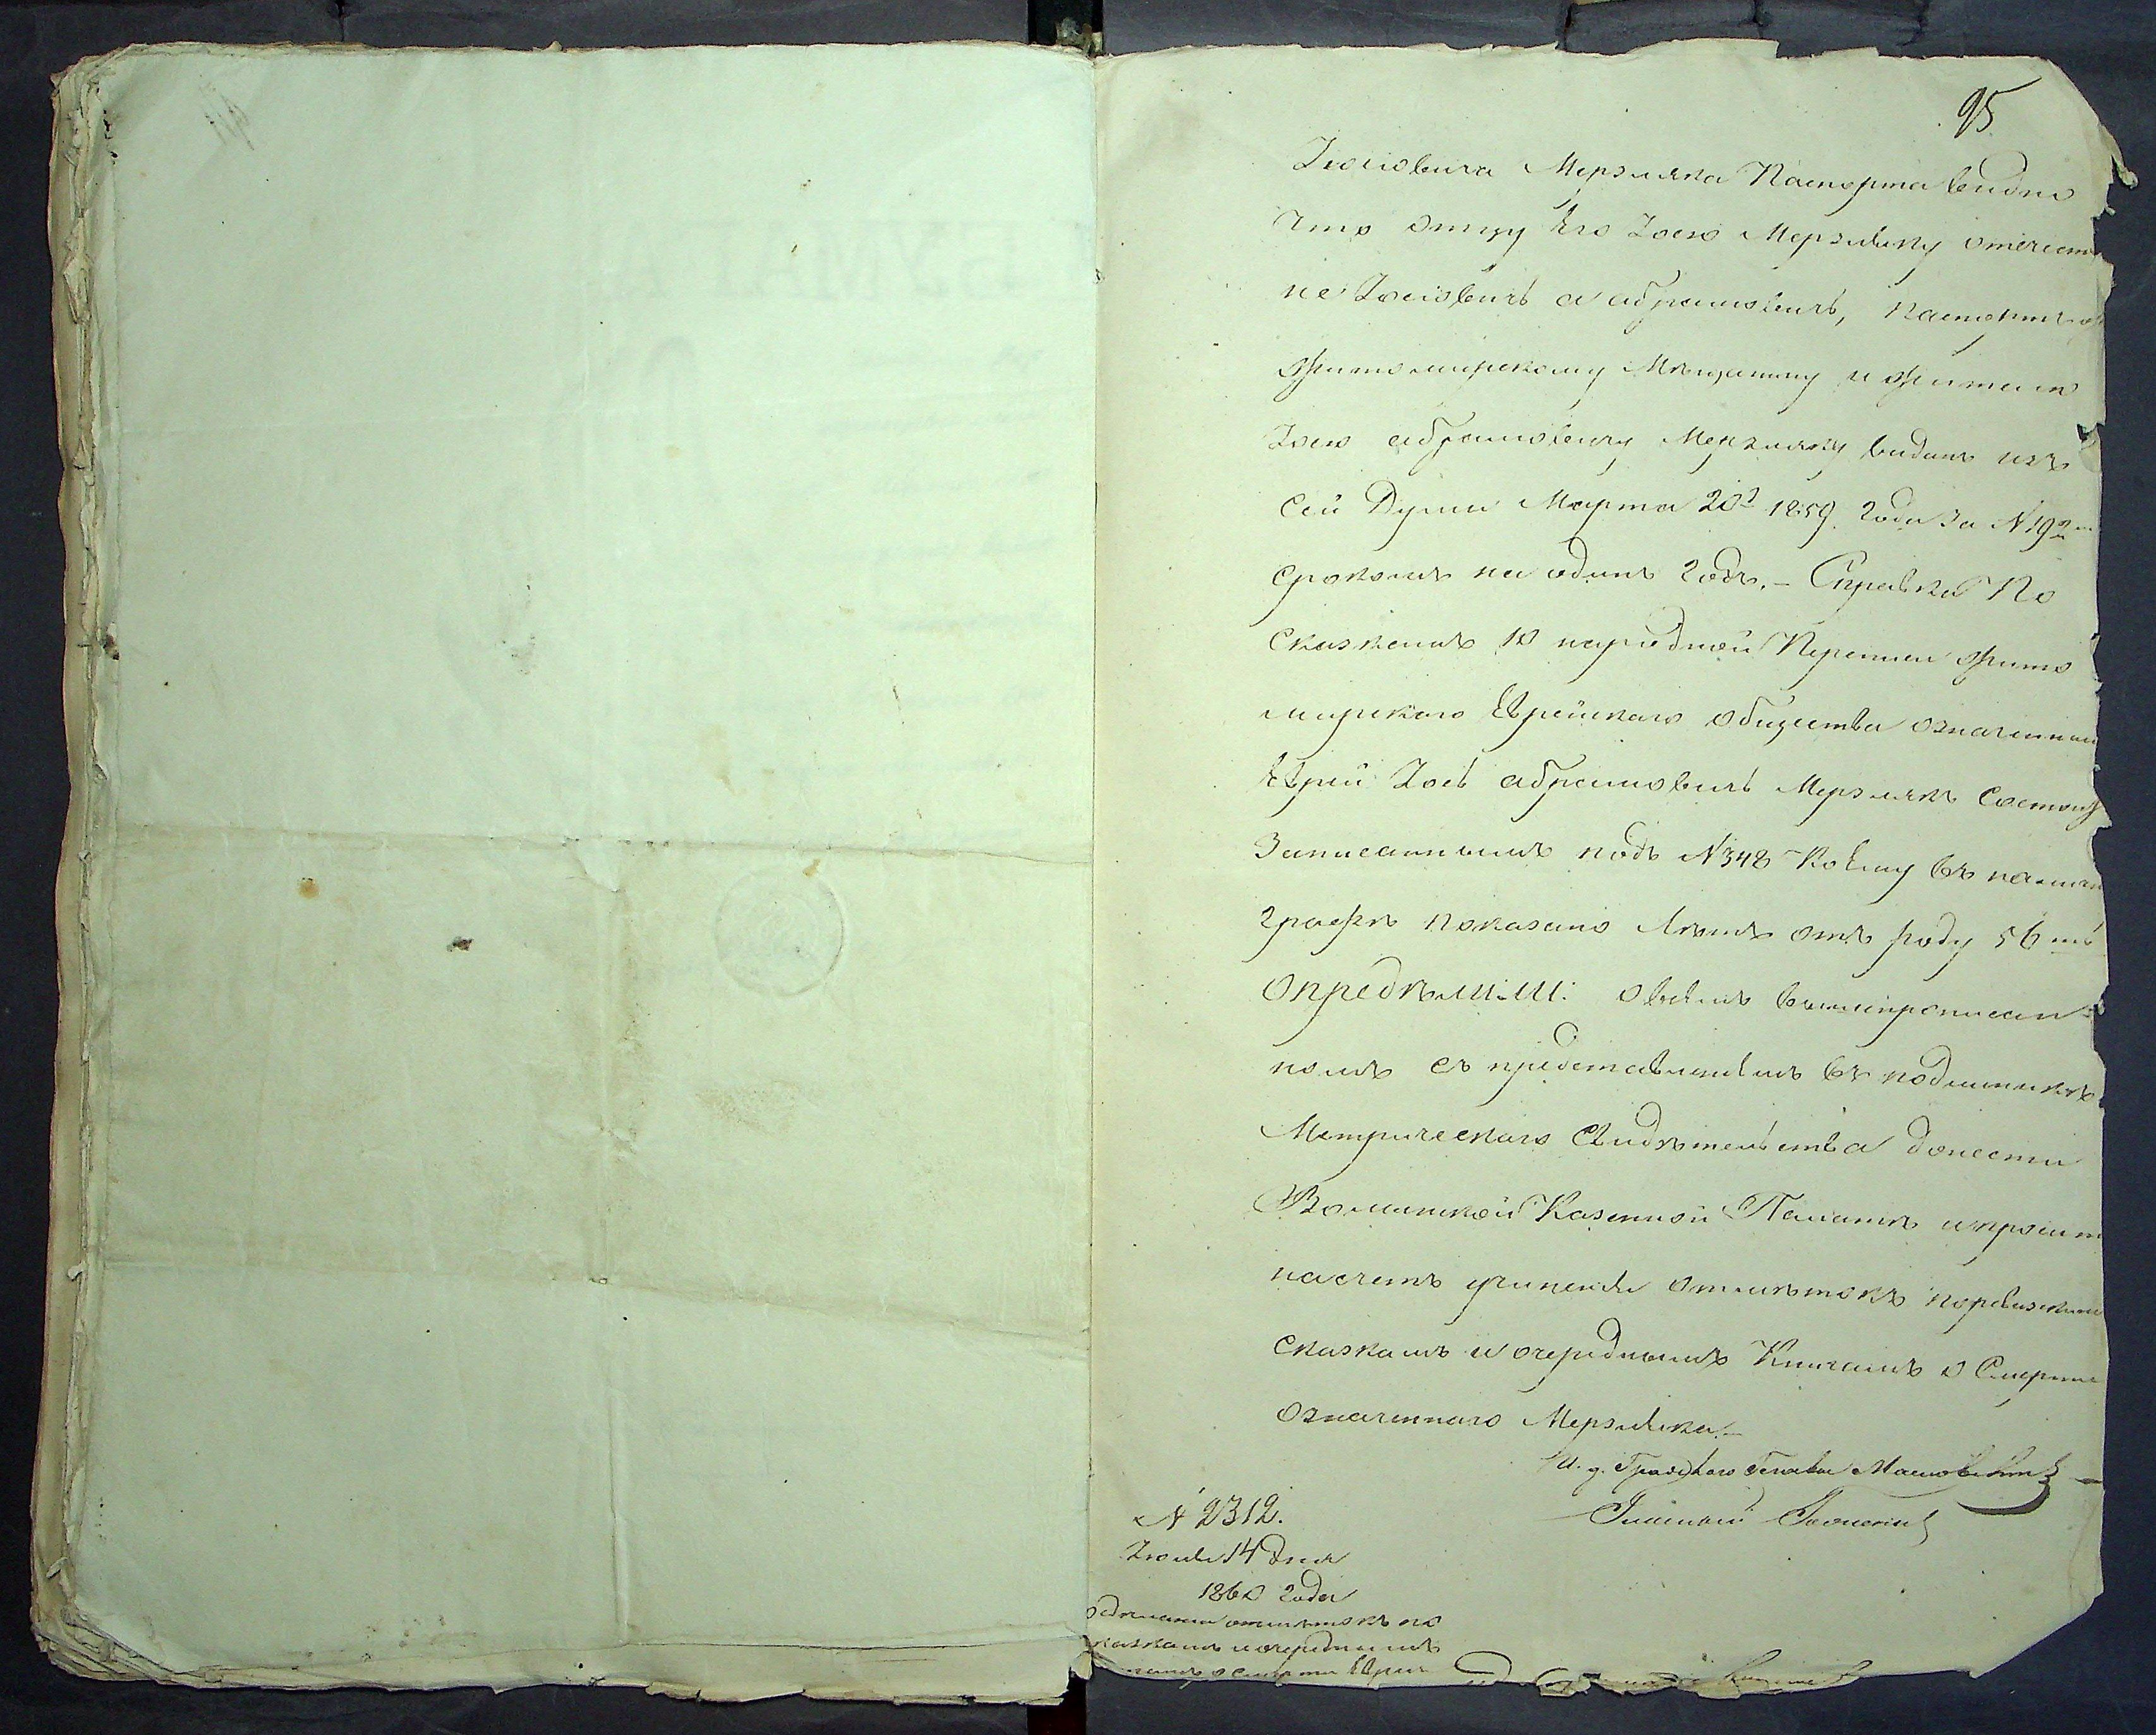 95
Іосіовича Мерзляка Паспорта видно
Что отцу Его Іосю Мерзляку отечест
не Іосіовичъ а абрамовичъ, паспортъ
Житомирскому Мѣщанину и жителю
Іосю абрамовичу Мерзляку виданъ изъ
сей Думы Марта 20 1859 года за N 192
срокомъ на одинъ годъ. – Справка По
сказкамъ 10 народной Переписи Жито
мирскаго Еврейскаго общества означенный
Еврей Іось абрамовичъ Мерзлякъ Состоитъ
Записаннымъ подъ N 348 Коему въ налич
графѣ показано Лѣтъ отъ роду 56
Опредѣлили: о всемъ вышепрописан-
номъ съ представленіемъ въ подлинникѣ
Метрическаго Свидѣтельства донести
Волынской Казенной Палатѣ и просит
насчетъ учиненія отмѣтокъ поревизским
сказкамъ и очереднымъ Книгамъ о Смерти
Означеннаго Мерзляка.–
И. д. Градскаго Главы
Гласный
N 2312.
Іюля 14 дня
1860 года
отмѣтокъ по
сказкамъ и очереднымъ
о смерти Еврея